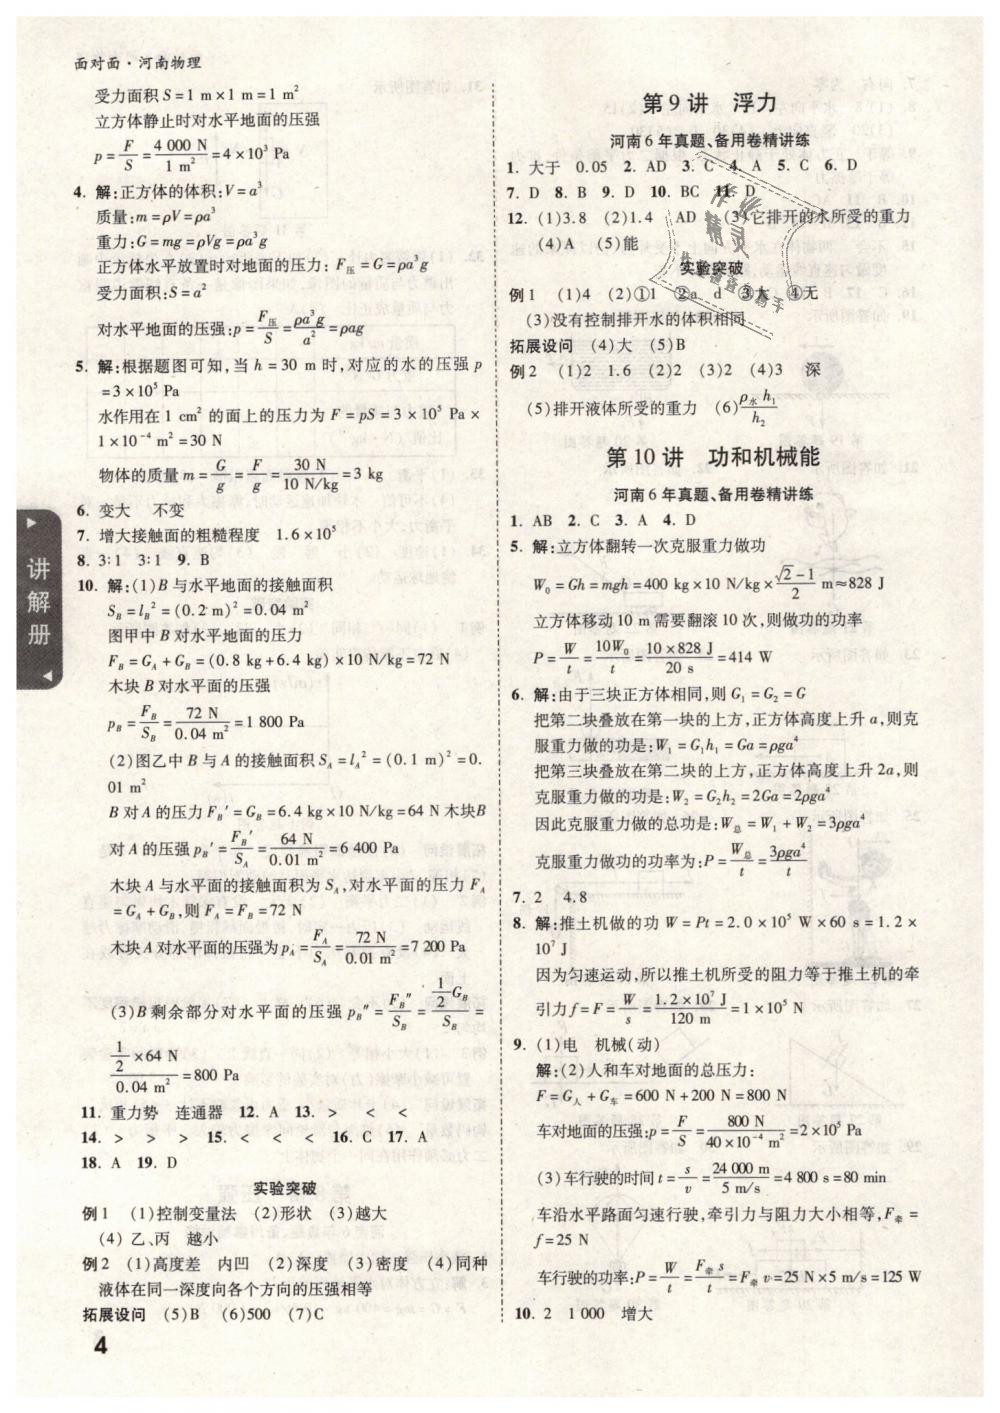 面对面·河南物理
受力面积 S = 1 m × 1 m = 1 m²
立方体静止时对水平地面的压强
p = F/S = 4 000 N/1 m² = 4 × 10³ Pa
4. 解:正方体的体积:V = a³
质量:m = ρV = ρa³
重力:G = mg = ρVg = ρa³g
正方体水平放置时对地面的压力: F压 = G = ρa³g
受力面积:S = a²
对水平地面的压强:p = F压/S = ρa³g/a² = ρag
5. 解:根据题图可知,当 h = 30 m 时,对应的水的压强 p
= 3 × 10⁵ Pa
水作用在 1 cm² 的面上的压力为 F = pS = 3 × 10⁵ Pa ×
1 × 10⁻⁴ m² = 30 N
物体的质量 m = G/g = F/g = 30 N/10 N/kg = 3 kg
6. 变大 不变
7. 增大接触面的粗糙程度 1.6 × 10⁵
8. 3:1 3:1 9. B
10. 解:(1)B 与水平地面的接触面积
S_B = l_B² = (0.2 m)² = 0.04 m²
图甲中 B 对水平地面的压力
F_B = G_A + G_B = (0.8 kg + 6.4 kg) × 10 N/kg = 72 N
木块 B 对水平面的压强
p_B = F_B/S_B = 72 N/0.04 m² = 1 800 Pa
(2)图乙中 B 与 A 的接触面积 S_A = l_A² = (0.1 m)² = 0.
01 m²
B 对 A 的压力 F_B′ = G_B = 6.4 kg × 10 N/kg = 64 N 木块B
对 A 的压强 p_B′ = F_B′/S_A = 64 N/0.01 m² = 6 400 Pa
木块 A 与水平面的接触面积为 S_A,对水平面的压力 F_A
= G_A + G_B,则 F_A = F_B = 72 N
木块 A 对水平面的压强为 p_A = F_A/S_A = 72 N/0.01 m² = 7 200 Pa
(3)B 剩余部分对水平面的压强 p_B″ = F_B″/S_B = ½G_B/S_B =
½ × 64 N/0.04 m² = 800 Pa
11. 重力势 连通器 12. A 13. > < <
14. > > > 15. < < < 16. C 17. A
18. A 19. D
实验突破
例 1 (1)控制变量法 (2)形状 (3)越大
(4) 乙、丙 越小
例 2 (1)高度差 内凹 (2)深度 (3)密度 (4)同种
液体在同一深度向各个方向的压强相等
拓展设问 (5)B (6)500 (7)C
4
讲解册
第 9 讲 浮力
河南 6 年真题、备用卷精讲练
1. 大于 0.05 2. AD 3. C 4. A 5. C 6. D
7. D 8. B 9. D 10. BC 11. D
12. (1)3.8 (2)1.4 AD (3)它排开的水所受的重力
(4)A (5)能
实验突破
例 1 (1)4 (2)①1 ②a d ③大 ④无
(3)没有控制排开水的体积相同
拓展设问 (4)大 (5)B
例 2 (1)2 1.6 (2)2 (3)2 (4)3 深
(5)排开液体所受的重力 (6)ρ水h₁/h₂
第 10 讲 功和机械能
河南 6 年真题、备用卷精讲练
1. AB 2. C 3. A 4. D
5. 解:立方体翻转一次克服重力做功
W₀ = Gh = mgh = 400 kg × 10 N/kg × (√2 − 1)/2 m ≈ 828 J
立方体移动 10 m 需要翻滚 10 次,则做功的功率
P = W/t = 10W₀/t = 10 × 828 J/20 s = 414 W
6. 解:由于三块正方体相同,则 G₁ = G₂ = G
把第二块叠放在第一块的上方,正方体高度上升 a,则克
服重力做的功是:W₁ = G₁h₁ = Ga = ρga⁴
把第三块叠放在第二块的上方,正方体高度上升 2a,则
克服重力做的功是:W₂ = G₂h₂ = 2Ga = 2ρga⁴
因此克服重力做的总功是:W总 = W₁ + W₂ = 3ρga⁴
克服重力做功的功率为:P = W总/t = 3ρga⁴/t
7. 2 4.8
8. 解:推土机做的功 W = Pt = 2.0 × 10⁵ W × 60 s = 1.2 ×
10⁷ J
因为匀速运动,所以推土机所受的阻力等于推土机的牵
引力 f = F = W/s = 1.2 × 10⁷ J/120 m = 1 × 10⁵ N
9. (1)电 机械(动)
解:(2)人和车对地面的总压力:
F = G人 + G车 = 600 N + 200 N = 800 N
车对地面的压强:p = F/S = 800 N/40 × 10⁻⁴ m² = 2 × 10⁵ Pa
(3)车行驶的时间 t = s/v = 24 000 m/5 m/s = 4 800 s = 80 min
车沿水平路面匀速行驶,牵引力与阻力大小相等,F牵 =
f = 25 N
车行驶的功率:P = W/t = F牵s/t = F牵v = 25 N × 5 m/s = 125 W
10. 2 1 000 增大
作业精灵